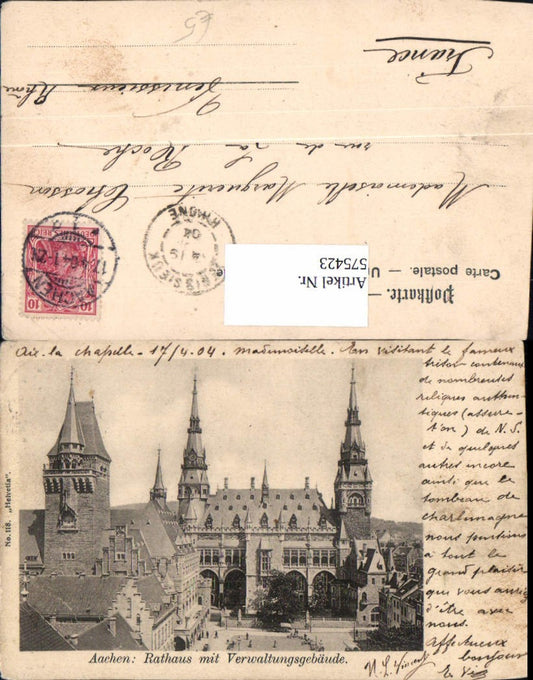 France
Vénissieux Rhône
rue de la Roche
Mademoiselle Marguerite Chosson
Carte postale. — U
Postkarte. —
Artikel Nr.
575423
VENISSIEUX
RHONE
04
AACHEN
10
10
Aix-la chapelle - 17/4.04. mademoiselle. En visitant le fameux
trésor contenant
de nombreuses
reliques authen-
tiques (assure-
t'on) de N.S.
et de quelques
autres encore
ainsi que le
tombeau de
charlemagne
nous pensions
à tout le
grand plaisir
que vous auriez
d'être avec
nous.
Affectueux
bonjour
No. 118. „Helvetia“.
Aachen: Rathaus mit Verwaltungsgebäude.